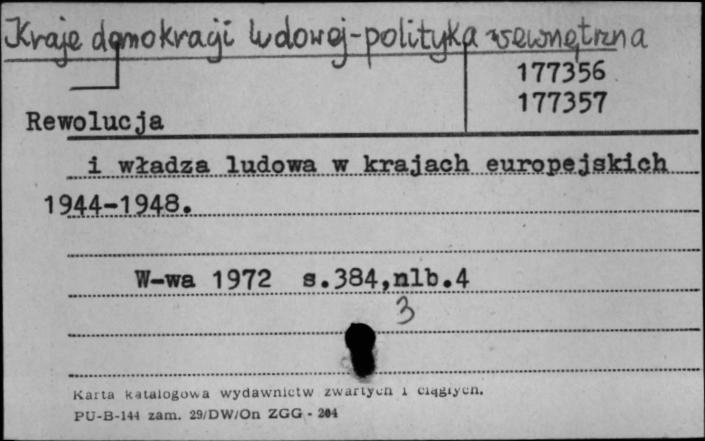 Kraje demokracji ludowej-polityka wewnętrzna
177356
177357
Rewolucja
i władza ludowa w krajach europejskich
1944-1948.
W-wa 1972 s.384,nlb.4
3
Karta katalogowa wydawnictw zwartych i ciągłych.
PU-B-144 zam. 29/DW/On ZGG - 204